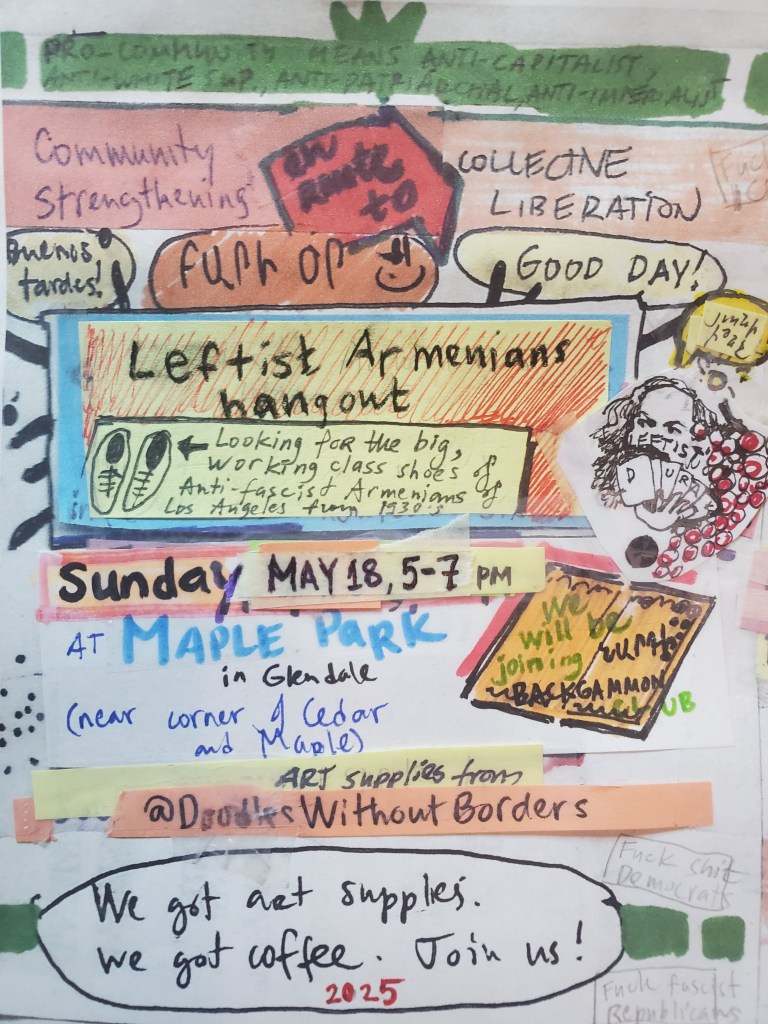 PRO-COMMUNITY MEANS ANTI-CAPITALIST,
ANTI-WHITE SUP., ANTI-PATRIARCHAL, ANTI-IMPERIALIST
Community
Strengthening
en
route
to
COLLECTIVE
LIBERATION
Fuck
ICE
Buenos
tardes!
Բարի օր
GOOD DAY!
Leftist Armenians
hangout
← Looking for the big,
working class shoes of
Anti-fascist Armenians of
Los Angeles from 1930's
LEFTIST
DURA
Sunday MAY 18, 5-7 PM
AT MAPLE PARK
in Glendale
(near corner of Cedar
and Maple)
We
will be
joining
BACKGAMMON
CLUB
ART supplies from
@DoodlesWithoutBorders
Fuck shit
Democrats
We got art supplies.
We got coffee. Join us!
2025
Fuck fascist
Republicans